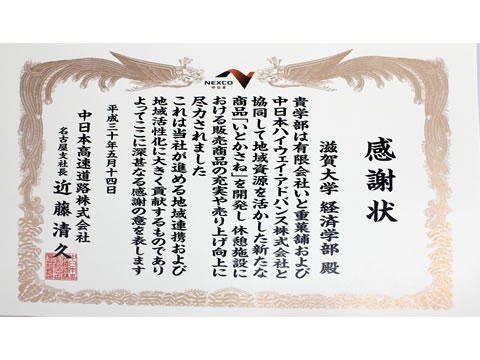 NEXCO
中日本
感謝状
滋賀大学 経済学部 殿
貴学部は有限会社いと重菓舗および
中日本ハイウェイ・アドバンス株式会社と
協同して地域資源を活かした新たな
商品「いとかさね」を開発し 休憩施設に
おける販売商品の充実や売り上げ向上に
尽力されました
これは当社が進める地域連携および
地域活性化に大きく貢献するものであり
よってここに深甚なる感謝の意を表します
平成三十年五月十四日
中日本高速道路株式会社
名古屋支社長 近藤清久